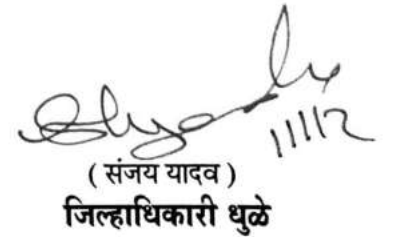 11/11/2
( संजय यादव )
जिल्हाधिकारी धुळे